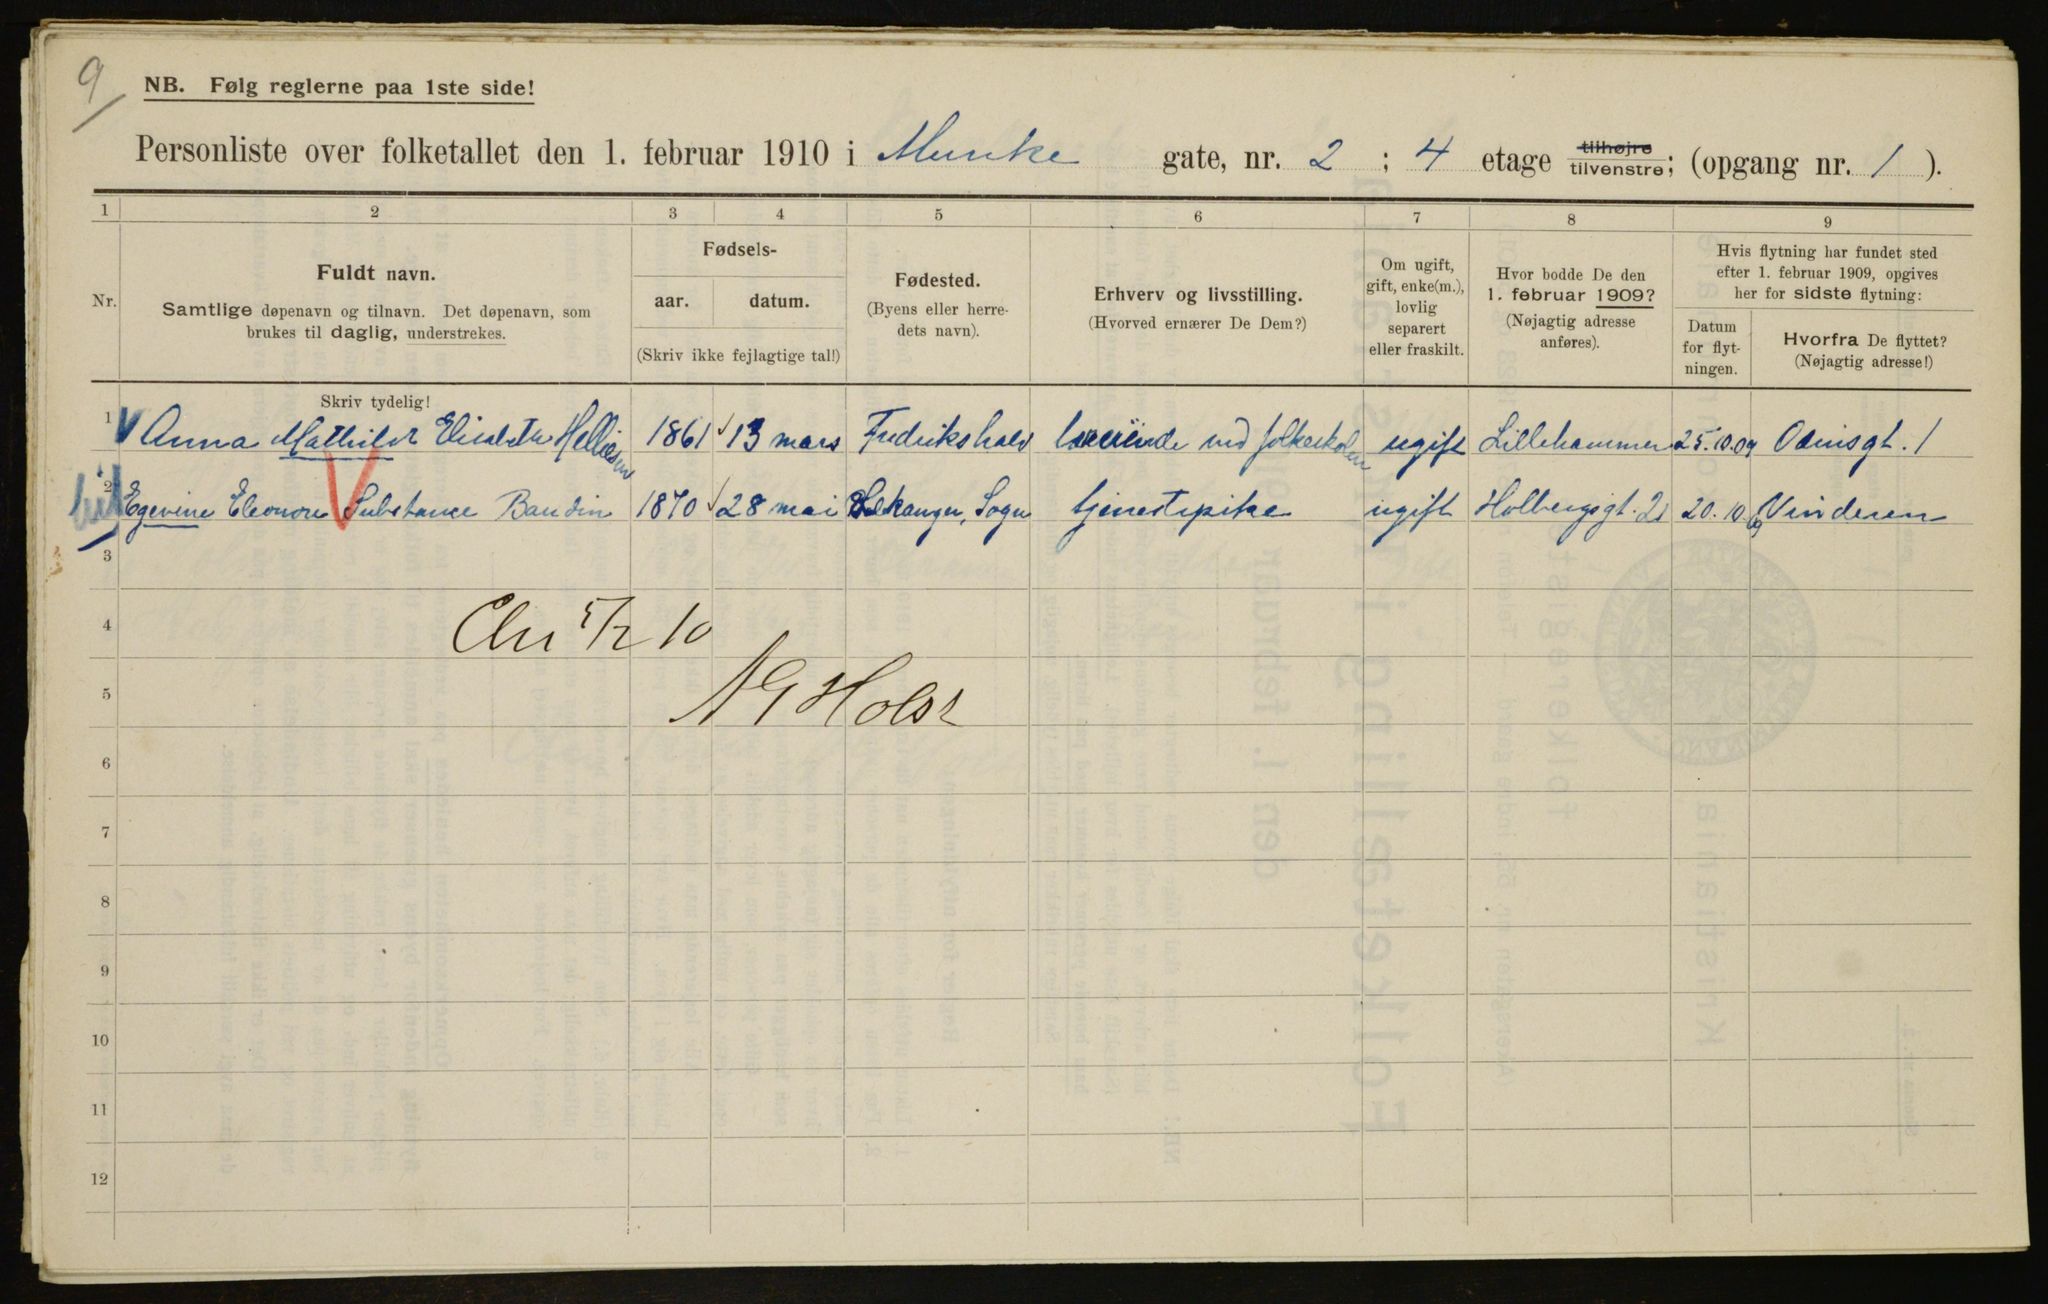 9
NB. Følg reglerne paa 1ste side!
Personliste over folketallet den 1. februar 1910 i Munke gate, nr. 2 ; 4 etage tilhøjre tilvenstre; (opgang nr. 1 ).
1 2 3 4 5 6 7 8 9
Nr.
Fuldt navn.
Samtlige døpenavn og tilnavn. Det døpenavn, som
brukes til daglig, understrekes.
Fødsels-
aar. datum.
(Skriv ikke fejlagtige tal!)
Fødested.
(Byens eller herre-
dets navn).
Erhverv og livsstilling.
(Hvorved ernærer De Dem?)
Om ugift,
gift, enke(m.),
lovlig
separert
eller fraskilt.
Hvor bodde De den
1. februar 1909?
(Nøjagtig adresse
anføres).
Hvis flytning har fundet sted
efter 1. februar 1909, opgives
her for sidste flytning:
Datum
for flyt-
ningen.
Hvorfra De flyttet?
(Nøjagtig adresse!)
Skriv tydelig!
1 Anna Mathilde Elisabeth Helliesen 1861 13 mars Fredrikshald lærerinde ved folkeskolen ugift Lillehammer 25.10.09 Odinsgt. 1
2 Egevine Eleonore Substance Baudin 1870 28 mai Lekanger, Sogn tjenestepike ugift Holbergsgt. 21 20.10.09 Vinderen
3
4 Chr 5/2 10
5 A G Holst
6
7
8
9
10
11
12